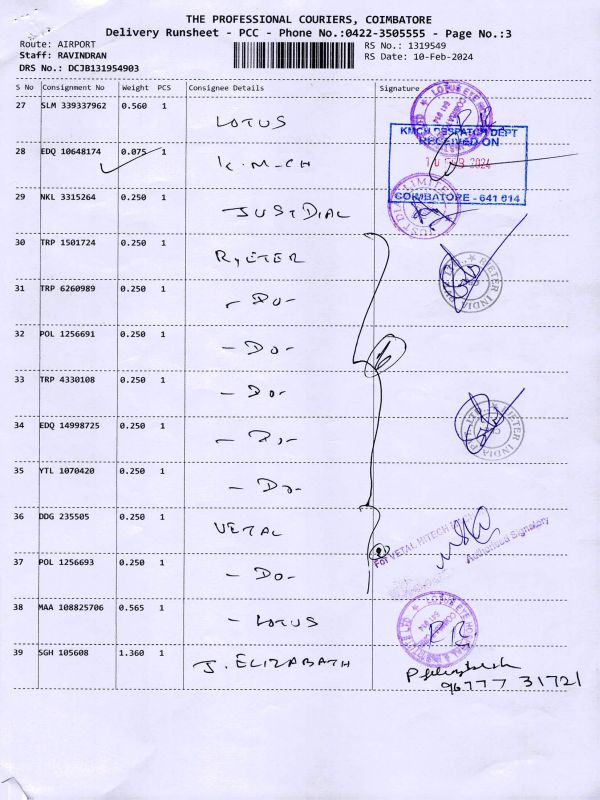 THE PROFESSIONAL COURIERS, COIMBATORE
Delivery Runsheet - PCC - Phone No.:0422-3505555 - Page No.:3
Route: AIRPORT
RS No.: 1319549
Staff: RAVINDRAN
RS Date: 10-Feb-2024
DRS No.: DCJB131954903
S No Consignment No Weight PCS Consignee Details Signature
27 SLM 339337962 0.560 1 LOTUS
28 EDQ 10648174 0.075 1 K.M.CH
KMCH DESPATCH DEPT
RECEIVED ON
10 FEB 2024
COIMBATORE - 641 014
29 NKL 3315264 0.250 1 JUSTDIAL
30 TRP 1501724 0.250 1 RYETER
31 TRP 6260989 0.250 1 - DO -
32 POL 1256691 0.250 1 - DO -
33 TRP 4330108 0.250 1 - DO -
34 EDQ 14998725 0.250 1 - DO -
RIETER INDIA PVT. LTD.
35 YTL 1070420 0.250 1 - DO -
36 DDG 235505 0.250 1 VETAL
For VETAL HITECH
Authorised Signatory
37 POL 1256693 0.250 1 - DO -
38 MAA 108825706 0.565 1 - LOTUS
39 SGH 105608 1.360 1 J. ELIZABATH
96777 31721